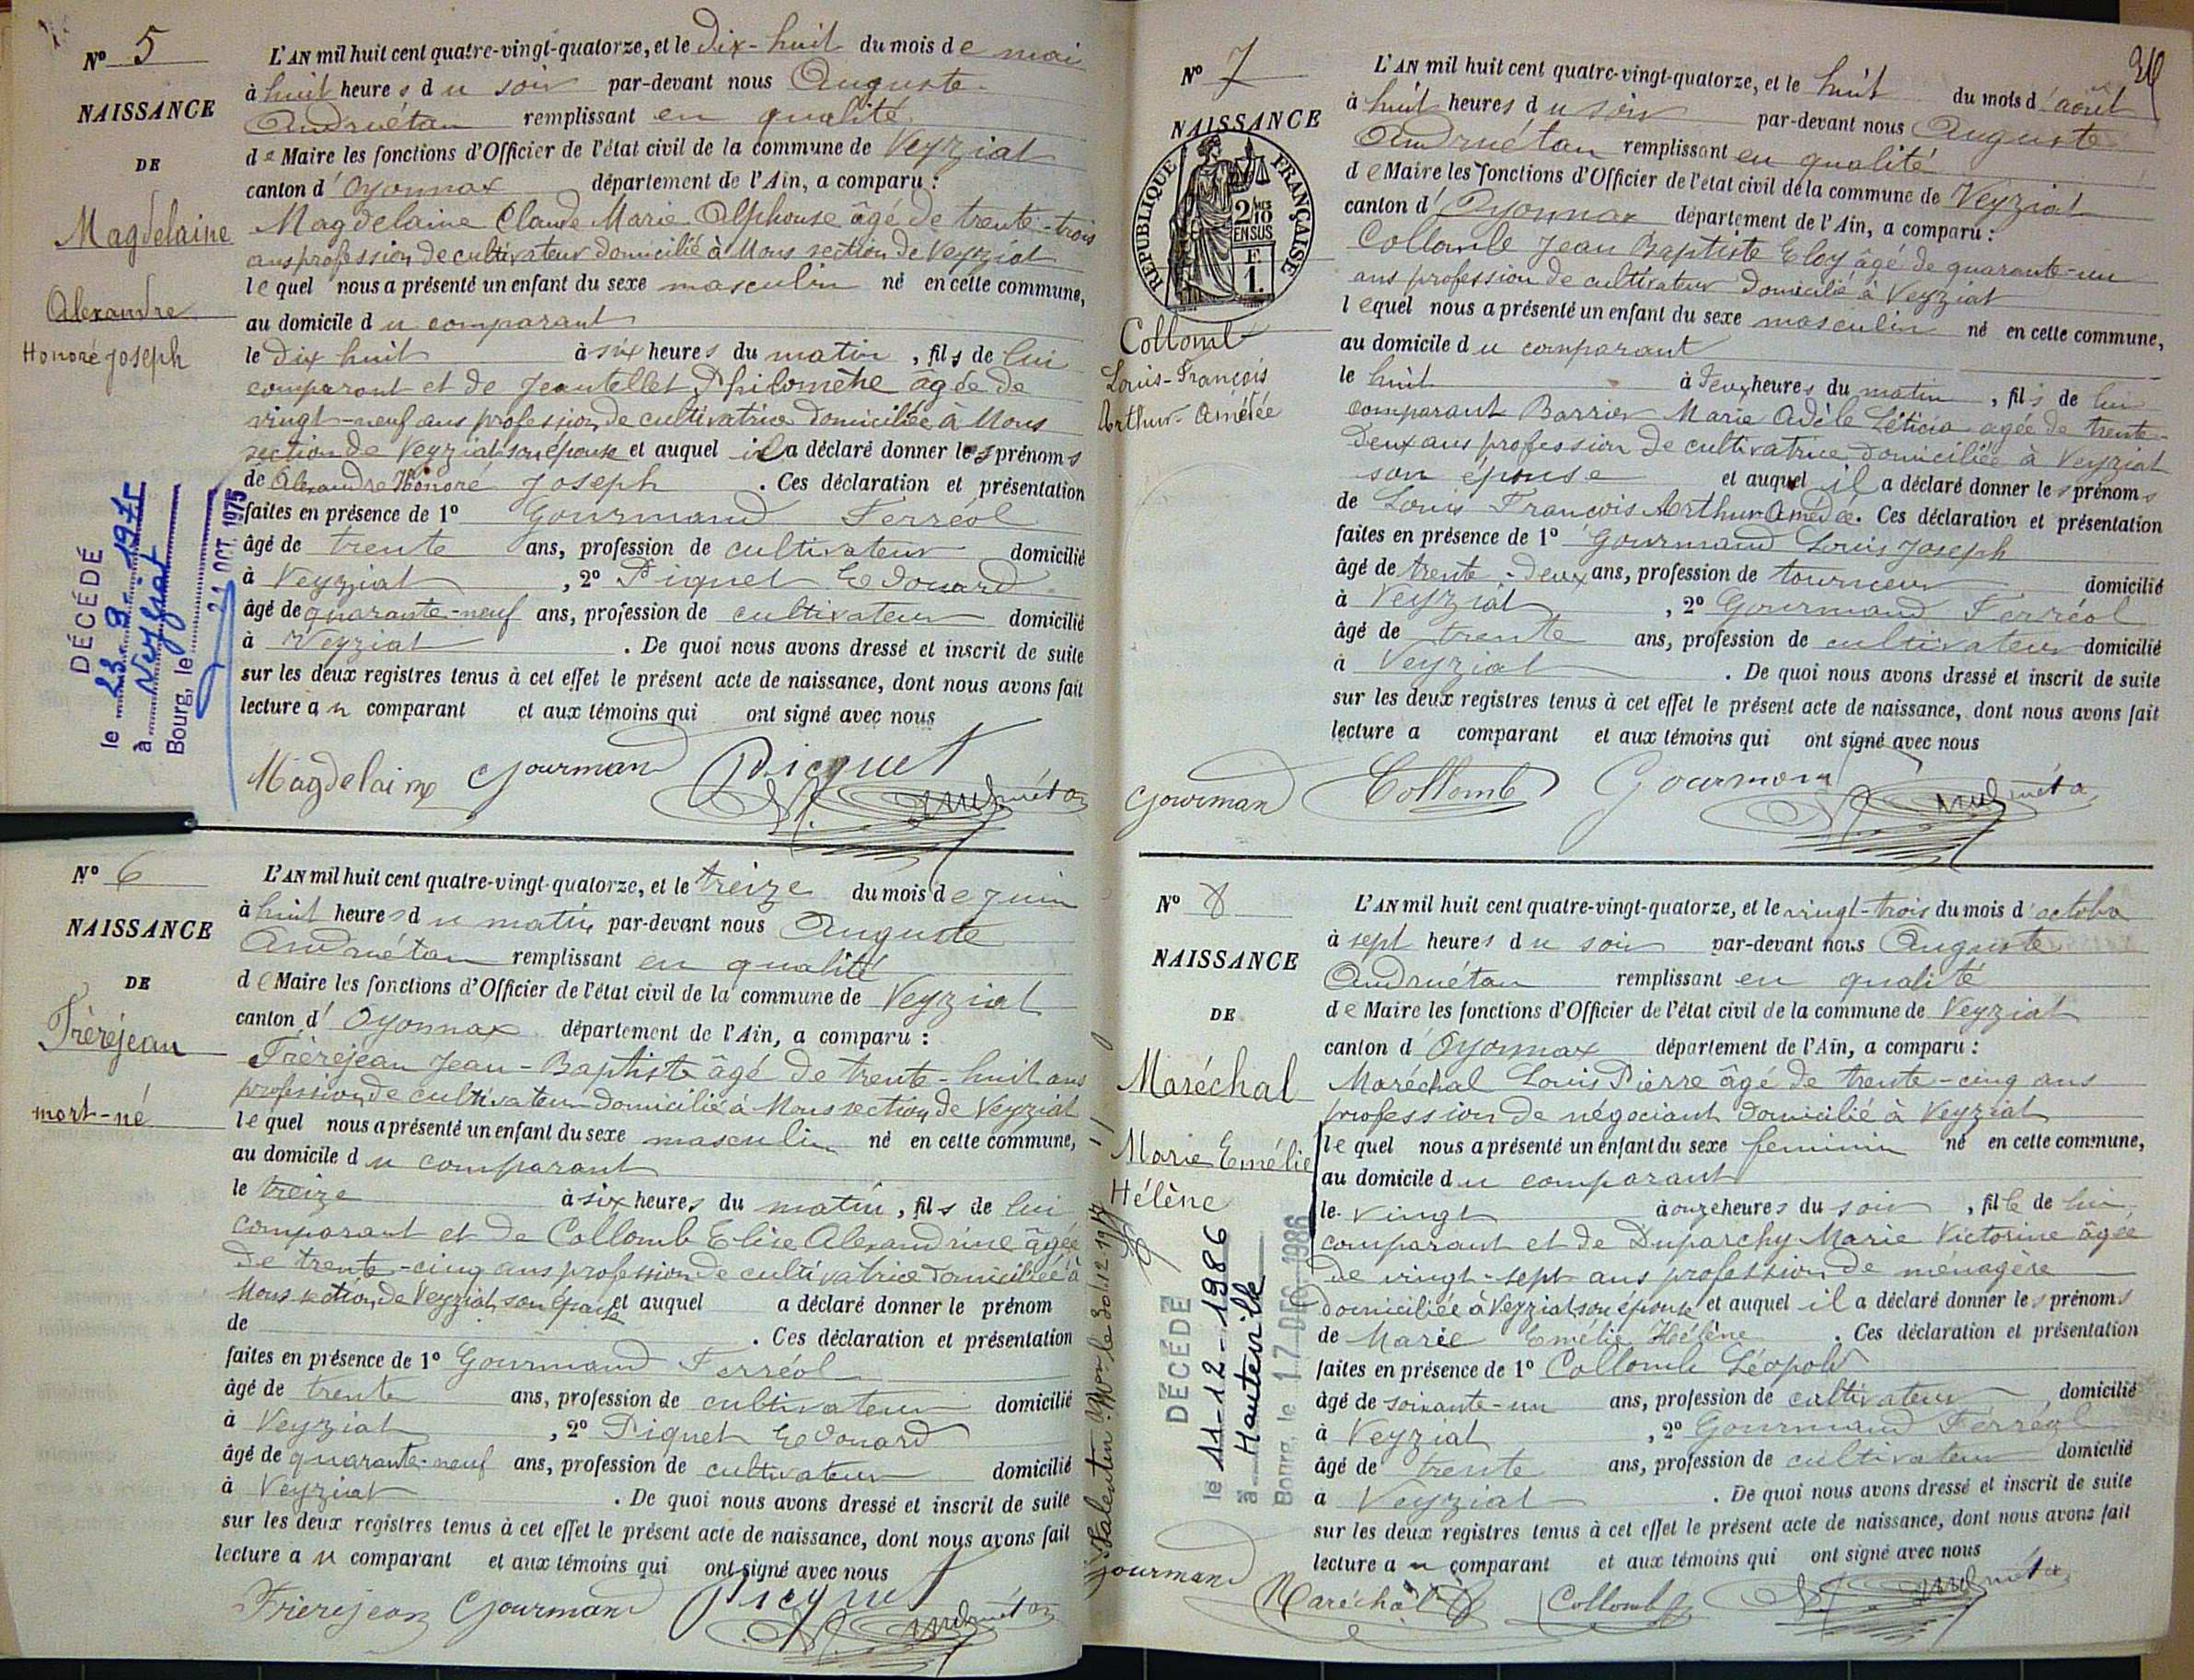 N° 5
NAISSANCE
DE
Magdelaine
Alexandre
Honoré Joseph
DÉCÉDÉ
le 23.9.1975
à Veyziat
Bourg, le 21 OCT. 1975
L'AN mil huit cent quatre-vingt-quatorze, et le dix-huit du mois de mai
à huit heures du soir par-devant nous Auguste
Andruétan remplissant en qualité
de Maire les fonctions d'Officier de l'état civil de la commune de Veyziat
canton d'Oyonnax département de l'Ain, a comparu :
Magdelaine Claude Marie Alphonse âgé de trente-trois
ans profession de cultivateur domicilié à Mons section de Veyziat
lequel nous a présenté un enfant du sexe masculin né en cette commune,
au domicile du comparant
le dix huit à six heures du matin, fils de lui
comparant et de Jeantellet Philomène âgée de
vingt-neuf ans profession de cultivatrice domiciliée à Mons
section de Veyziat son épouse et auquel il a déclaré donner les prénoms
de Alexandre Honoré Joseph. Ces déclaration et présentation
faites en présence de 1° Gourmand Ferréol
âgé de trente ans, profession de cultivateur domicilié
à Veyziat, 2° Piquet Edouard
âgé de quarante-neuf ans, profession de cultivateur domicilié
à Veyziat. De quoi nous avons dressé et inscrit de suite
sur les deux registres tenus à cet effet le présent acte de naissance, dont nous avons fait
lecture au comparant et aux témoins qui ont signé avec nous
Magdelaine Gourmand Picquet Andruétan
N° 6
NAISSANCE
DE
Frèrejean
mort-né
L'AN mil huit cent quatre-vingt-quatorze, et le treize du mois de juin
à huit heures du matin par-devant nous Auguste
Andruétan remplissant en qualité
de Maire les fonctions d'Officier de l'état civil de la commune de Veyziat
canton d'Oyonnax département de l'Ain, a comparu :
Frèrejean Jean-Baptiste âgé de trente-huit ans
profession de cultivateur domicilié à Mons section de Veyziat
lequel nous a présenté un enfant du sexe masculin né en cette commune,
au domicile du comparant
le treize à six heures du matin, fils de lui
comparant et de Collomb Elise Alexandrine âgée
de trente-cinq ans profession de cultivatrice domiciliée à
Mons section de Veyziat son épouse et auquel a déclaré donner le prénom
de . Ces déclaration et présentation
faites en présence de 1° Gourmand Ferréol
âgé de trente ans, profession de cultivateur domicilié
à Veyziat, 2° Piquet Edouard
âgé de quarante-neuf ans, profession de cultivateur domicilié
à Veyziat. De quoi nous avons dressé et inscrit de suite
sur les deux registres tenus à cet effet le présent acte de naissance, dont nous avons fait
lecture au comparant et aux témoins qui ont signé avec nous
Frèrejean Gourmand Picquet Andruétan
N° 7
NAISSANCE
RÉPUBLIQUE FRANÇAISE
2/10 EN SUS
F. 1.
Collomb
Louis-François
Arthur-Amédée
L'AN mil huit cent quatre-vingt-quatorze, et le huit du mois d'août
à huit heures du soir par-devant nous Auguste
Andruétan remplissant en qualité
de Maire les fonctions d'Officier de l'état civil de la commune de Veyziat
canton d'Oyonnax département de l'Ain, a comparu :
Collomb Jean Baptiste Eloy âgé de quarante-un
ans profession de cultivateur domicilié à Veyziat
lequel nous a présenté un enfant du sexe masculin né en cette commune,
au domicile du comparant
le huit à deux heures du matin, fils de lui
comparant Barrier Marie Adèle Léticia agée de trente-
deux ans profession de cultivatrice domiciliée à Veyziat
son épouse et auquel il a déclaré donner les prénoms
de Louis François Arthur Amédée. Ces déclaration et présentation
faites en présence de 1° Gourmand Louis Joseph
âgé de trente-deux ans, profession de tourneur domicilié
à Veyziat, 2° Gourmand Ferréol
âgé de trente ans, profession de cultivateur domicilié
à Veyziat. De quoi nous avons dressé et inscrit de suite
sur les deux registres tenus à cet effet le présent acte de naissance, dont nous avons fait
lecture a comparant et aux témoins qui ont signé avec nous
Gourmand Collomb Gourmand Andruétan
N° 8
NAISSANCE
DE
Maréchal
Marie Emélie
Hélène
DÉCÉDÉ
le 11-12-1986
à Hauteville
Bourg, le 17 DEC 1986
L'AN mil huit cent quatre-vingt-quatorze, et le vingt-trois du mois d'octobre
à sept heures du soir par-devant nous Auguste
Andruétan remplissant en qualité
de Maire les fonctions d'Officier de l'état civil de la commune de Veyziat
canton d'Oyonnax département de l'Ain, a comparu :
Maréchal Louis Pierre âgé de trente-cinq ans
profession de négociant domicilié à Veyziat
lequel nous a présenté un enfant du sexe feminin né en cette commune,
au domicile du comparant
le vingt à onze heures du soir, fille de lui
comparant et de Duparchy Marie Victorine âgée
de vingt-sept ans profession de ménagère
domiciliée à Veyziat son épouse et auquel il a déclaré donner les prénoms
de Marie Emélie Hélène. Ces déclaration et présentation
faites en présence de 1° Collomb Léopold
âgé de soixante-un ans, profession de cultivateur domicilié
à Veyziat, 2° Gourmand Ferréol
âgé de trente ans, profession de cultivateur domicilié
à Veyziat. De quoi nous avons dressé et inscrit de suite
sur les deux registres tenus à cet effet le présent acte de naissance, dont nous avons fait
lecture au comparant et aux témoins qui ont signé avec nous
Gourmand Maréchal Collomb Andruétan